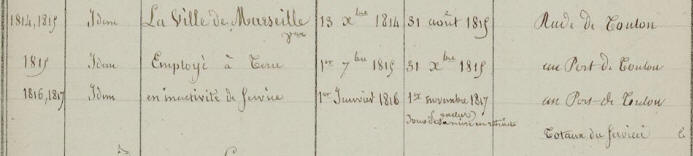 1814, 1815 Idem La Ville de Marseille 13 Xbre 1814 31 août 1815 Rade de Toulon
1815 Idem Employé à Terre 1er 7bre 1815 31 Xbre 1815 au Port de Toulon
1816, 1817 Idem en inactivité de Service 1er Janvier 1816 1er novembre 1817 au Port de Toulon
Totaux du Service